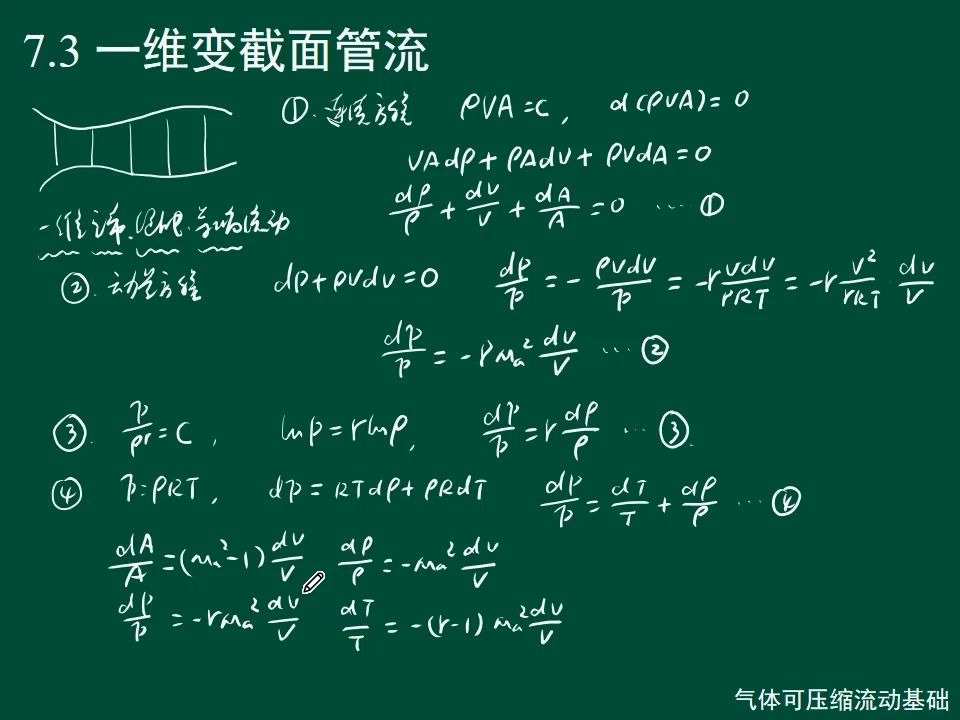 7.3 一维变截面管流
① 连续方程 ρVA=C, d(ρVA)=0
VAdρ+ρAdV+ρVdA=0
dρ/ρ+dV/V+dA/A=0 ⋯ ①
一维定常、绝热、等熵流动
② 动量方程 dp+ρVdV=0 dp/p=-ρVdV/p=-r VdV/rRT=-r V²/rRT · dV/V
dp/p=-rMa² dV/V ⋯ ②
③. p/ρʳ=C, lnp=rlnρ, dp/p=r dρ/ρ ⋯ ③.
④ p=ρRT, dp=RTdρ+ρRdT dp/p=dT/T+dρ/ρ ⋯ ④
dA/A=(Ma²-1)dV/V dρ/ρ=-Ma² dV/V
dp/p=-rMa² dV/V dT/T=-(r-1)Ma² dV/V
气体可压缩流动基础